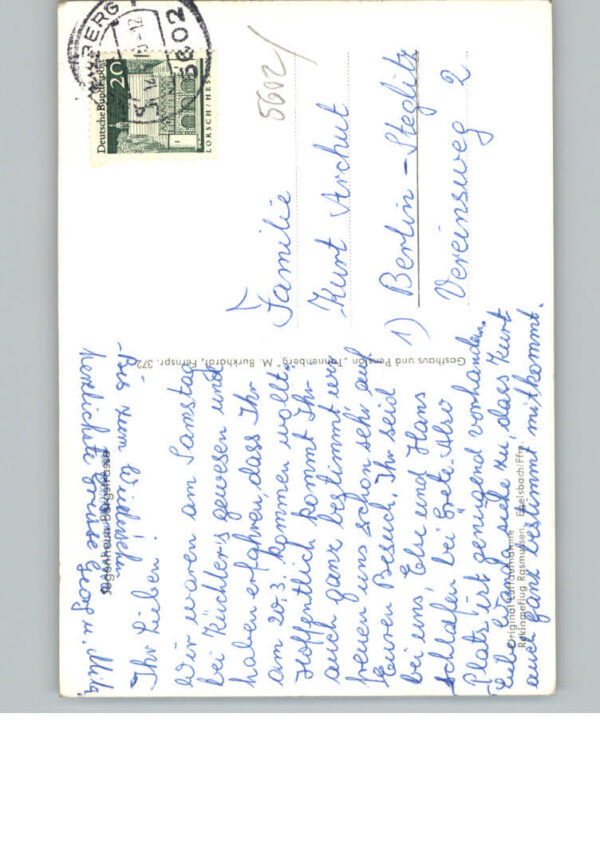 Jugenheim Bergstrasse
Ihr Lieben!
Wir waren am Samstag
bei Küchlers gewesen und
haben erfahren, dass Ihr
am 20.3. kommen wollt.
Hoffentlich kommt Ihr
auch ganz bestimmt wir
freuen uns schon sehr auf
Euren Besuch. Ihr seid
bei uns, Else und Hans
schlafen bei Grete. Also
Platz ist genügend vorhanden.
Liebe Wanda siehe zu, dass Kurt
auch ganz bestimmt mitkommt.
Bis zum Wiedersehn
herzlichste Grüsse Georg u. Mila
Gasthaus und Pension „Tannenberg" M. Burkhardt, Fernspr. 372
Original Luftaufnahme
Reklameflug Rasmussen Egelsbach/Ffm.
Deutsche Bundespost
20
LORSCH/HESSEN
5602
5602/
Familie
Kurt Archut
1) Berlin-Steglitz
Vereinsweg 2